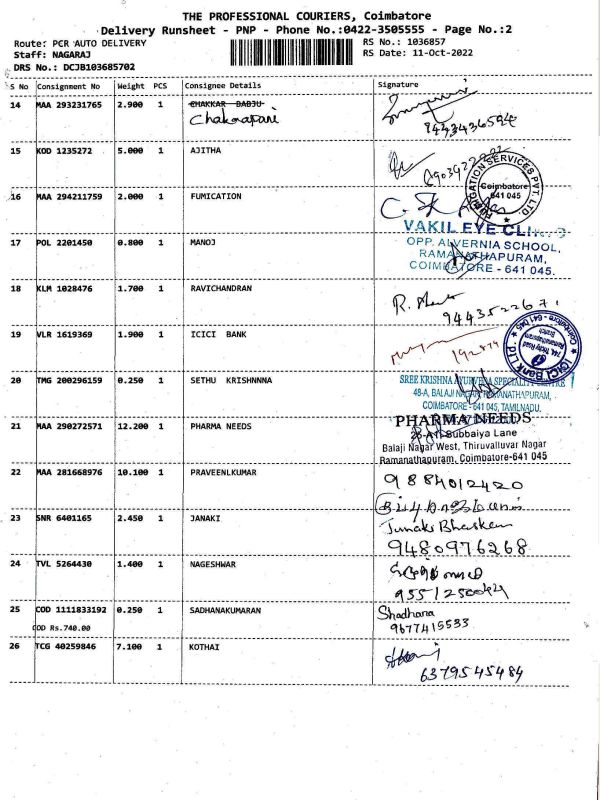 THE PROFESSIONAL COURIERS, Coimbatore
Delivery Runsheet - PNP - Phone No.:0422-3505555 - Page No.:2
Route: PCR AUTO DELIVERY RS No.: 1036857
Staff: NAGARAJ RS Date: 11-Oct-2022
DRS No.: DCJB103685702
S No Consignment No Weight PCS Consignee Details Signature
14 MAA 293231765 2.900 1 CHAKKAR BABJU
Chakrapani
9443436594
15 KOD 1235272 5.000 1 AJITHA
16 MAA 294211759 2.000 1 FUMICATION
Coimbatore
641 045
VAKIL EYE
17 POL 2201450 0.800 1 MANOJ
OPP. ALVERNIA SCHOOL,
RAMANATHAPURAM,
COIMBATORE - 641 045.
18 KLM 1028476 1.700 1 RAVICHANDRAN
9443522671
19 VLR 1619369 1.900 1 ICICI BANK
ICICI BANK
20 TMG 200296159 0.250 1 SETHU KRISHNNNA
SREE KRISHNA AYURVEDA SPECIALITY CENTRE
48-A, BALAJI NAGAR, RAMANATHAPURAM,
COIMBATORE - 641 045, TAMILNADU.
21 MAA 290272571 12.200 1 PHARMA NEEDS
PHARMA NEEDS
Subbaiya Lane
Balaji Nagar West, Thiruvalluvar Nagar
Ramanathapuram, Coimbatore-641 045
22 MAA 281668976 10.100 1 PRAVEENLKUMAR
9884012420
23 SNR 6401165 2.450 1 JANAKI
Janaki Bhaskar
9480976268
24 TVL 5264430 1.400 1 NAGESHWAR
25 COD 1111833192 0.250 1 SADHANAKUMARAN
Shadhana
COD Rs.740.00
9677415533
26 TCG 40259846 7.100 1 KOTHAI
6379545484